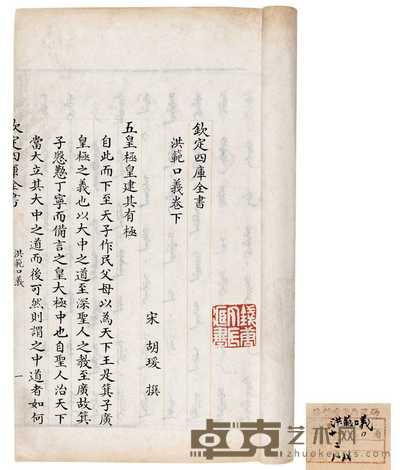 欽定四庫全書
洪範口義卷下
宋 胡瑗 撰
五皇極皇建其有極
自此而下至天子作民父母以為天下王是箕子廣
皇極之義也以大中之道至深聖人之教至廣故箕
子懇懇丁寧而備言之皇大極中也自聖人治天下
當大立其大中之道而後可然則謂之中道者如何
欽定四庫全書
洪範口義
一
洪範口義
卓克艺术网